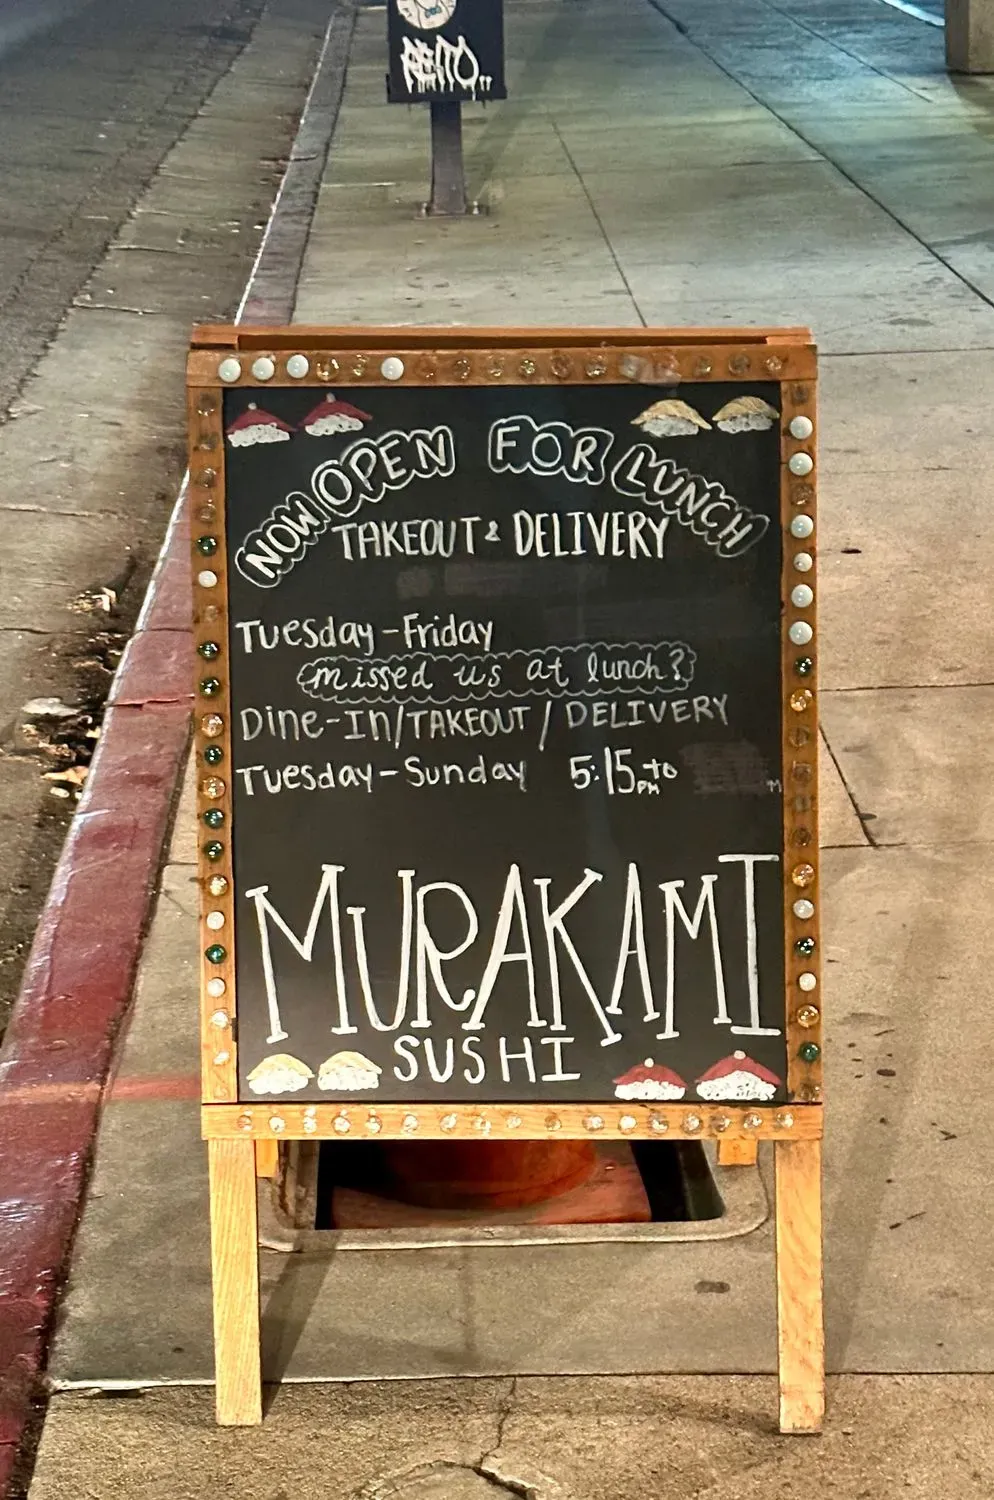 REITO..
NOW OPEN FOR LUNCH
TAKEOUT & DELIVERY
Tuesday-Friday
missed us at lunch?
Dine-In/TAKEOUT / DELIVERY
Tuesday-Sunday 5:15PM to
MURAKAMI
SUSHI